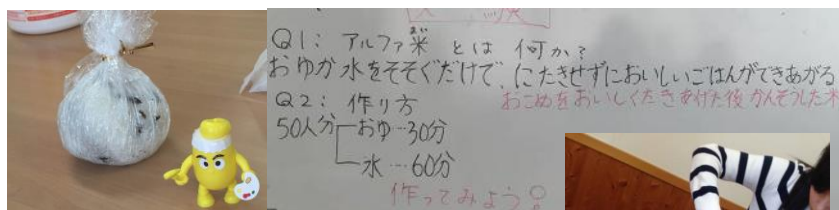 Q1: アルファ米 とは 何か?
おゆか 水をそそぐだけで、にたきせずにおいしいごはんができあがる
おこめをおいしくたきあげた後 かんそうした
Q2: 作り方
50人分 おゆ…30分
水…60分
作ってみよう